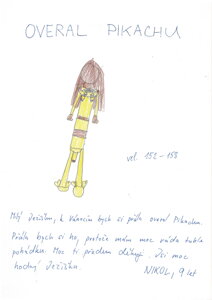 OVERAL PIKACHU
vel. 152-158
Milý Ježíšku, k Vánocům bych si přála overal Pikachu.
Přála bych si ho, protože mám moc ráda tuhle
pohádku. Moc ti předem děkuji. Jsi moc
hodný Ježíšku.
NIKOL, 9 let